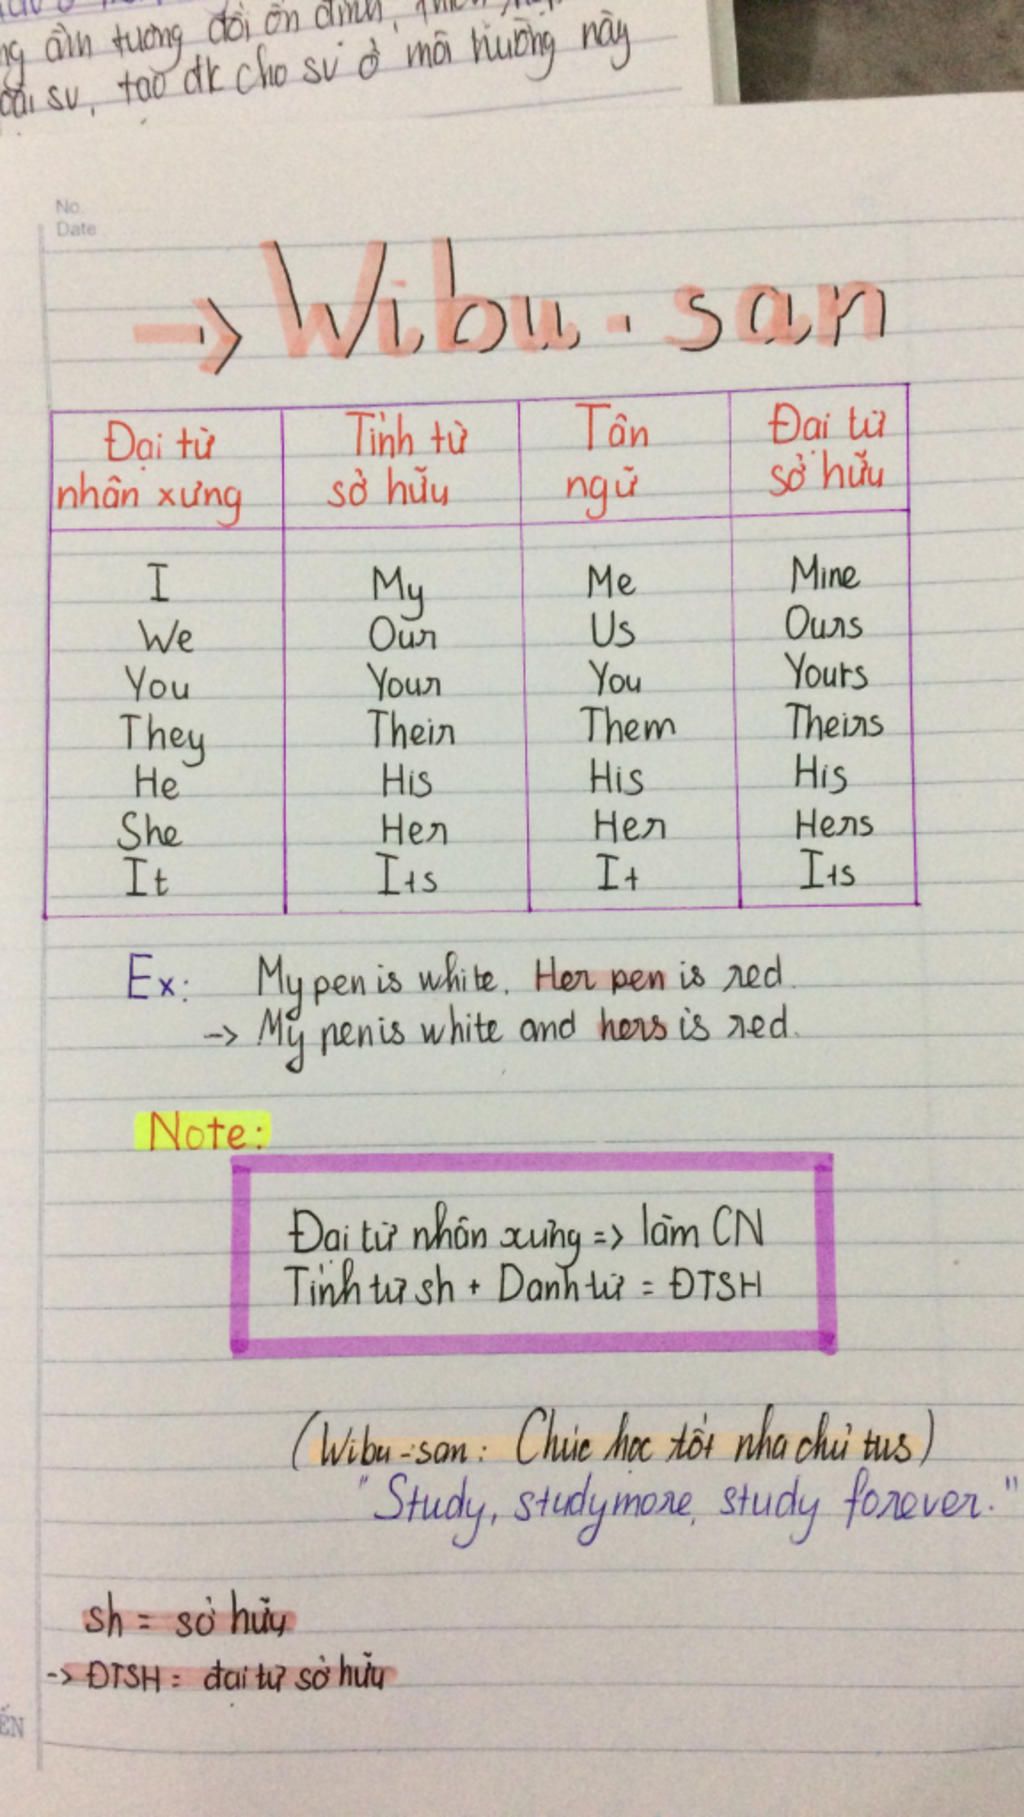 âm tương đối ổn định,
sv, tạo đk cho sv ở môi trường này
No.
Date
→ Wibu-san
Đại từ nhân xưng | Tính từ sở hữu | Tân ngữ | Đại từ sở hữu
I | My | Me | Mine
We | Our | Us | Ours
You | Your | You | Yours
They | Their | Them | Theirs
He | His | His | His
She | Her | Her | Hers
It | Its | It | Its
Ex: My pen is white. Her pen is red.
-> My pen is white and hers is red.
Note:
Đại từ nhân xưng => làm CN
Tính từ sh + Danh từ = ĐTSH
(Wibu-san: Chúc học tốt nha chủ tus)
"Study, study more, study forever."
sh = sở hữu
-> ĐTSH = đại từ sở hữu